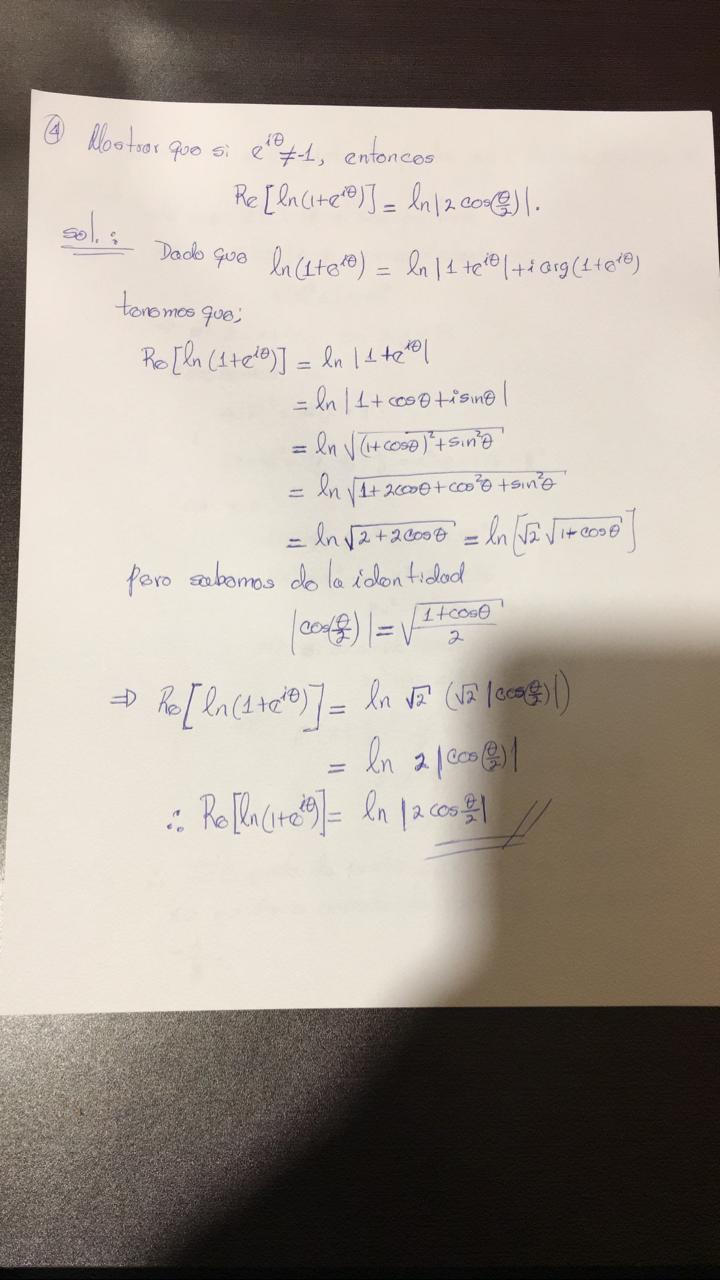 ④ Mostrar que si e^{iθ} ≠ -1, entonces
Re[ln(1+e^{iθ})] = ln|2 cos(θ/2)|.
sol.:
Dado que ln(1+e^{iθ}) = ln|1+e^{iθ}| + i arg(1+e^{iθ})
tenemos que;
Re[ln(1+e^{iθ})] = ln|1+e^{iθ}|
= ln|1+cosθ+isinθ|
= ln √((1+cosθ)²+sin²θ)
= ln √(1+2cosθ+cos²θ+sin²θ)
= ln √(2+2cosθ) = ln[√2 √(1+cosθ)]
pero sabemos de la identidad
|cos(θ/2)| = √((1+cosθ)/2)
⇒ Re[ln(1+e^{iθ})] = ln √2 (√2 |cos(θ/2)|)
= ln 2|cos(θ/2)|
∴ Re[ln(1+e^{iθ})] = ln |2 cos θ/2|